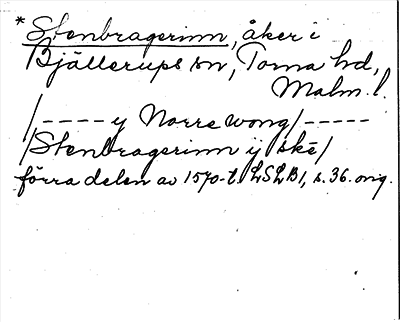 * Stenbragerinn, åker i
Bjällerups sn, Torna hd,
Malm. l.
/---- y Norre wong/-----
/Stenbragerinn ij skē/
förra delen av 1570-t. LSLB1, s. 36. orig.